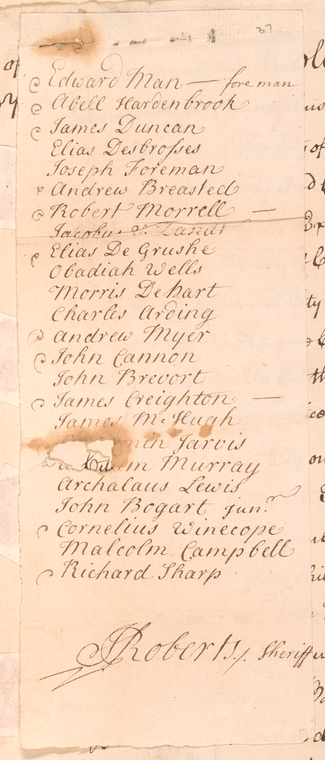 37
Edward Man — foreman
Abell Hardenbrook
James Duncan
Elias Desbrosses
Joseph Foreman
Andrew Breasted
Robert Morrell —
Jacobus V. Zandt
Elias De Grushe
Obadiah Wells
Morris Dehart
Charles Arding
Andrew Myer
John Cannon
John Brevort
James Creighton —
James McHugh
Jarvis
Murray
Archalaus Lewis
John Bogart junr
Cornelius Winecope
Malcolm Campbell
Richard Sharp
Roberts, Sheriff